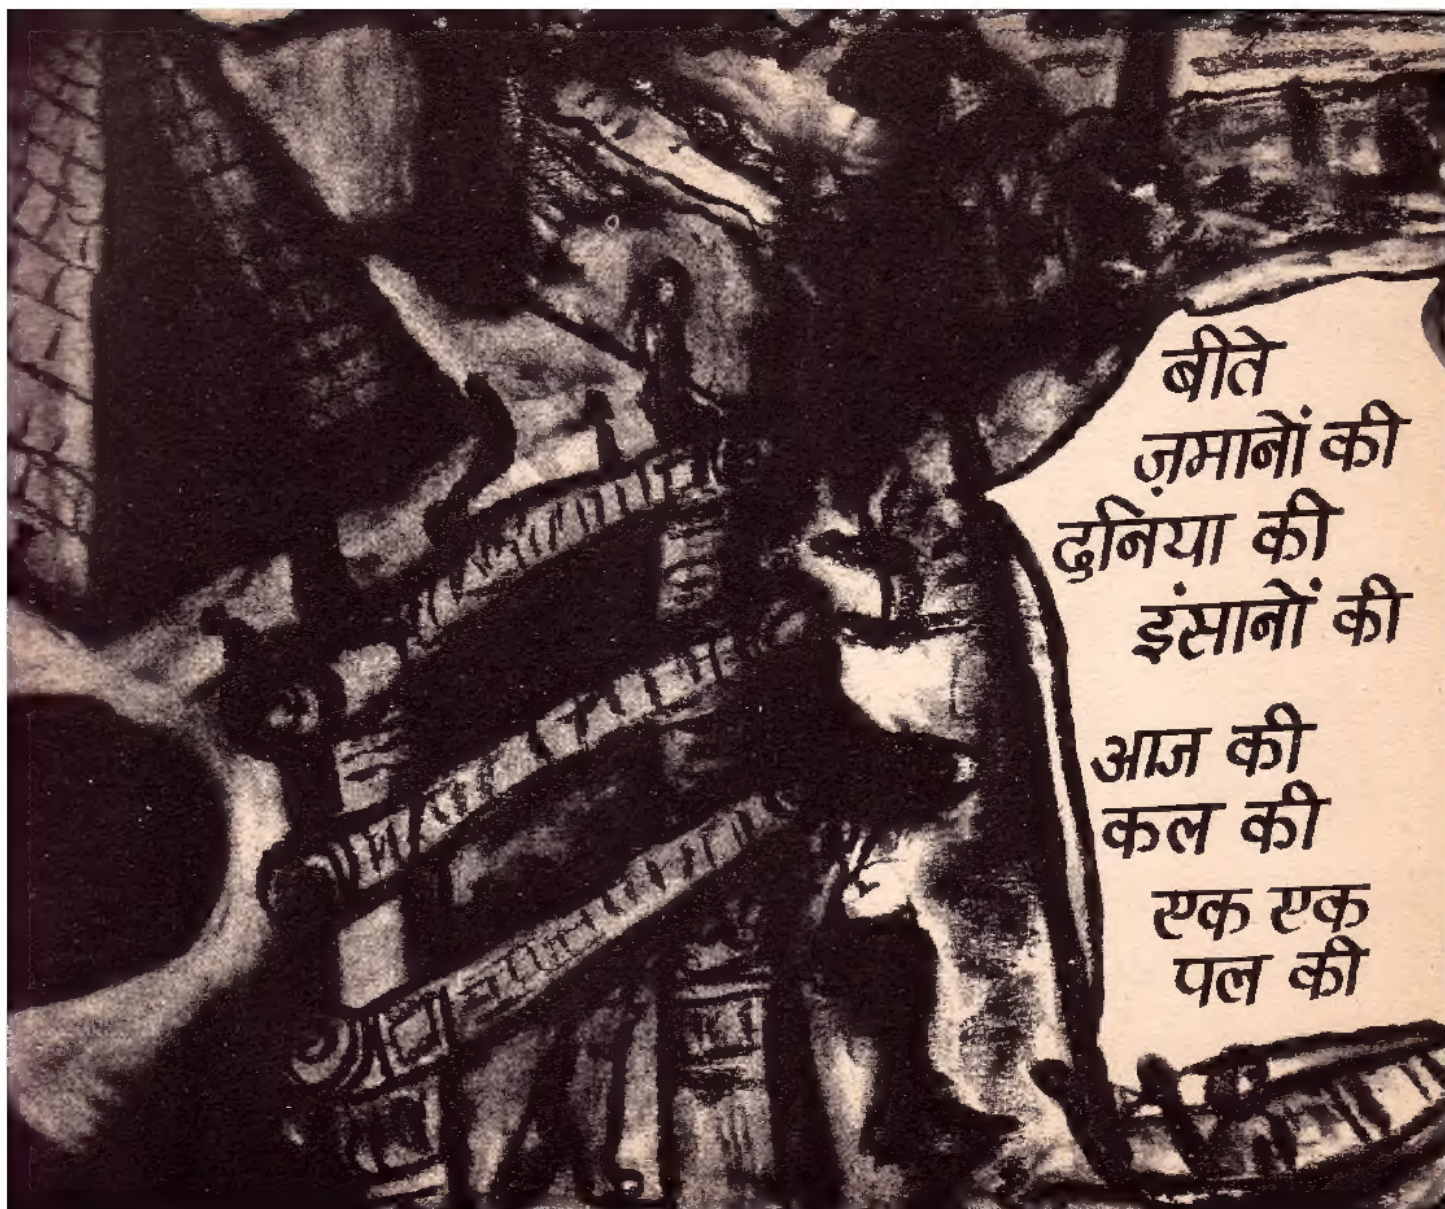 बीते
ज़मानों की
दुनिया की
इंसानों की
आज की
कल की
एक एक
पल की